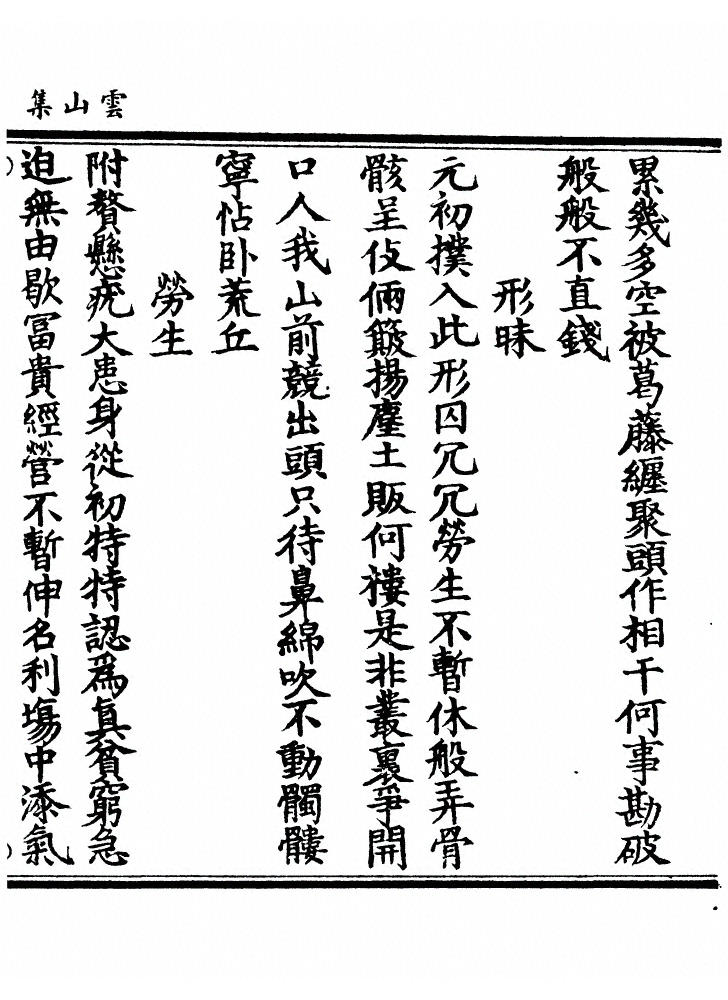 雲山集
累幾多空被葛藤纏聚頭作相干何事勘破
般般不直錢
形昧
元初撲入此形囚冗冗勞生不暫休般弄骨
骸呈伎倆簸揚塵土販何樓是非叢裏爭開
口人我山前競出頭只待鼻綿吹不動髑髏
寧帖卧荒丘
勞生
附贅懸疣大患身從初特特認為真貧窮急
迫無由歇冨貴經營不暫伸名利塲中添氣